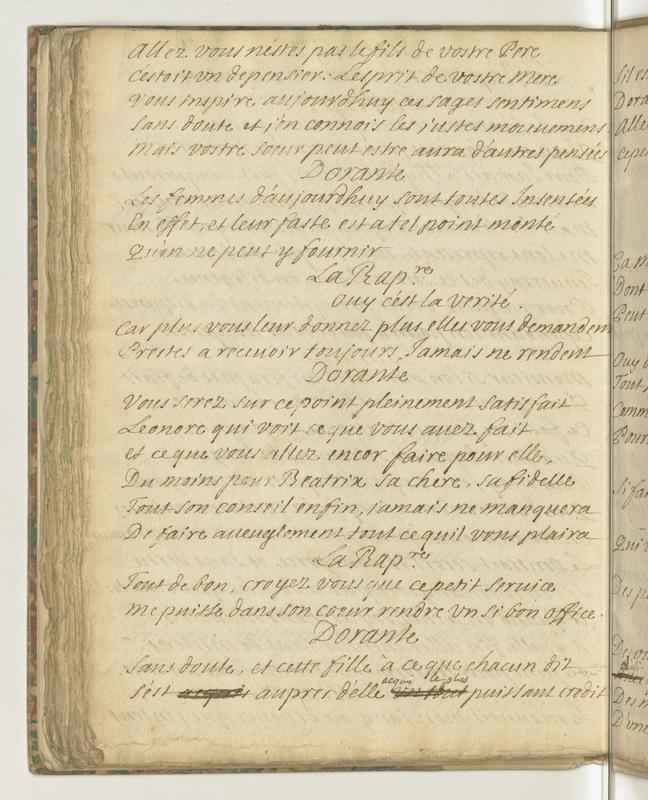 Allez vous nestes pas le fils de vostre Pere
cestoit vn depensier. Lesprit de vostre Mere
vous inspire aujourdhuy ces sages sentimens
sans doute et j'en connois les justes mouuemens
Mais vostre soeur peut estre aura d'autres pensées
Dorante
Les femmes d'aujourdhuy sont toutes Insensées
En effet, et leur faste est a tel point monté
Qu'on ne peut y fournir
La Rap.re
Ouy c'est la verité.
Car plus vous leur donnez plus elles vous demandent
Prestes a receuoir toujours, Jamais ne rendent
Dorante
Vous serez sur ce point pleinement satisfait
Leonore qui voit ce que vous auez fait
et ce que vous allez encor faire pour elle,
Du moins pour Beatrix sa chere, sa fidelle
Tout son conseil enfin, jamais ne manquera
De faire aueuglement tout ce quil vous plaira
La Rap.re
Tout de bon, croyez vous que ce petit seruice
me puisse dans son coeur rendre vn si bon office.
Dorante
sans doute, et cette fille à ce que chacun dit
s'est aupres d'elle acquis le plus puissant credit
sil es
Dora
Alle
cepe
Dont
Peut
Ouy
Tout
Comm
Pour
si fa
Qui
Des p